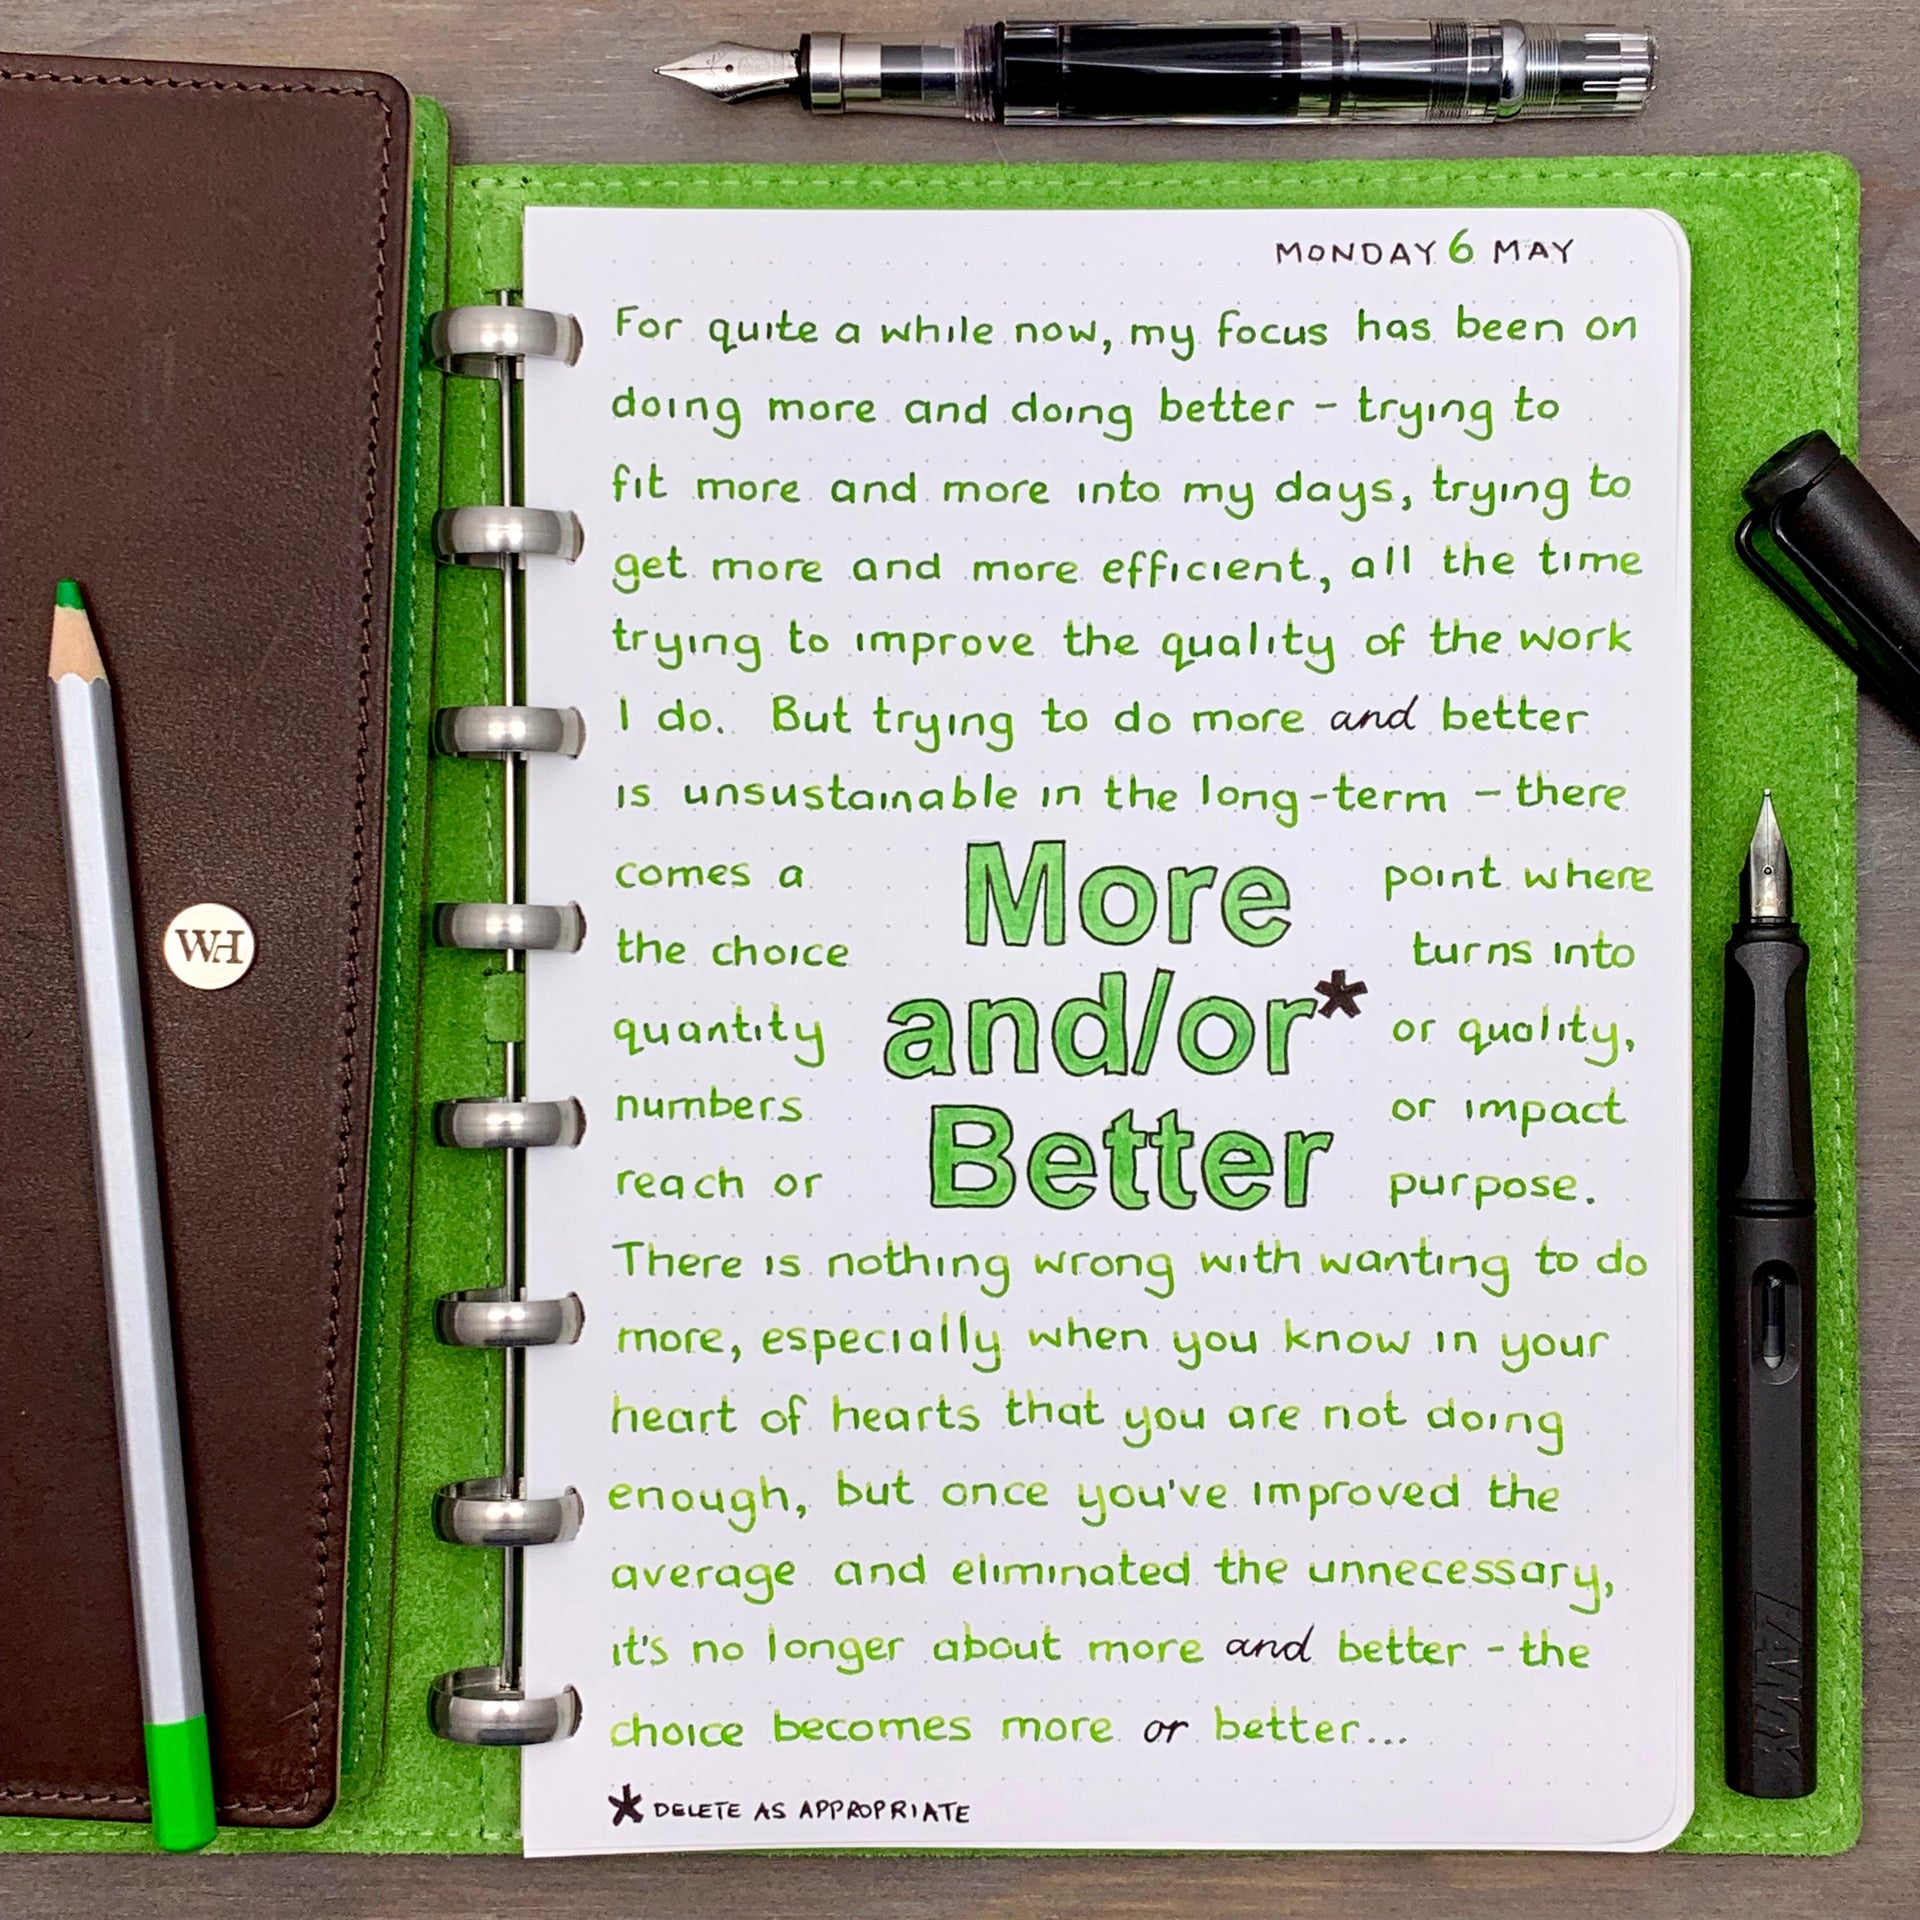 MONDAY 6 MAY
For quite a while now, my focus has been on
doing more and doing better - trying to
fit more and more into my days, trying to
get more and more efficient, all the time
trying to improve the quality of the work
I do. But trying to do more and better
is unsustainable in the long-term - there
comes a point where
the choice turns into
quantity or quality,
numbers or impact
reach or purpose.
More
and/or*
Better
There is nothing wrong with wanting to do
more, especially when you know in your
heart of hearts that you are not doing
enough, but once you've improved the
average and eliminated the unnecessary,
it's no longer about more and better - the
choice becomes more or better...
* DELETE AS APPROPRIATE
WH
LAMY